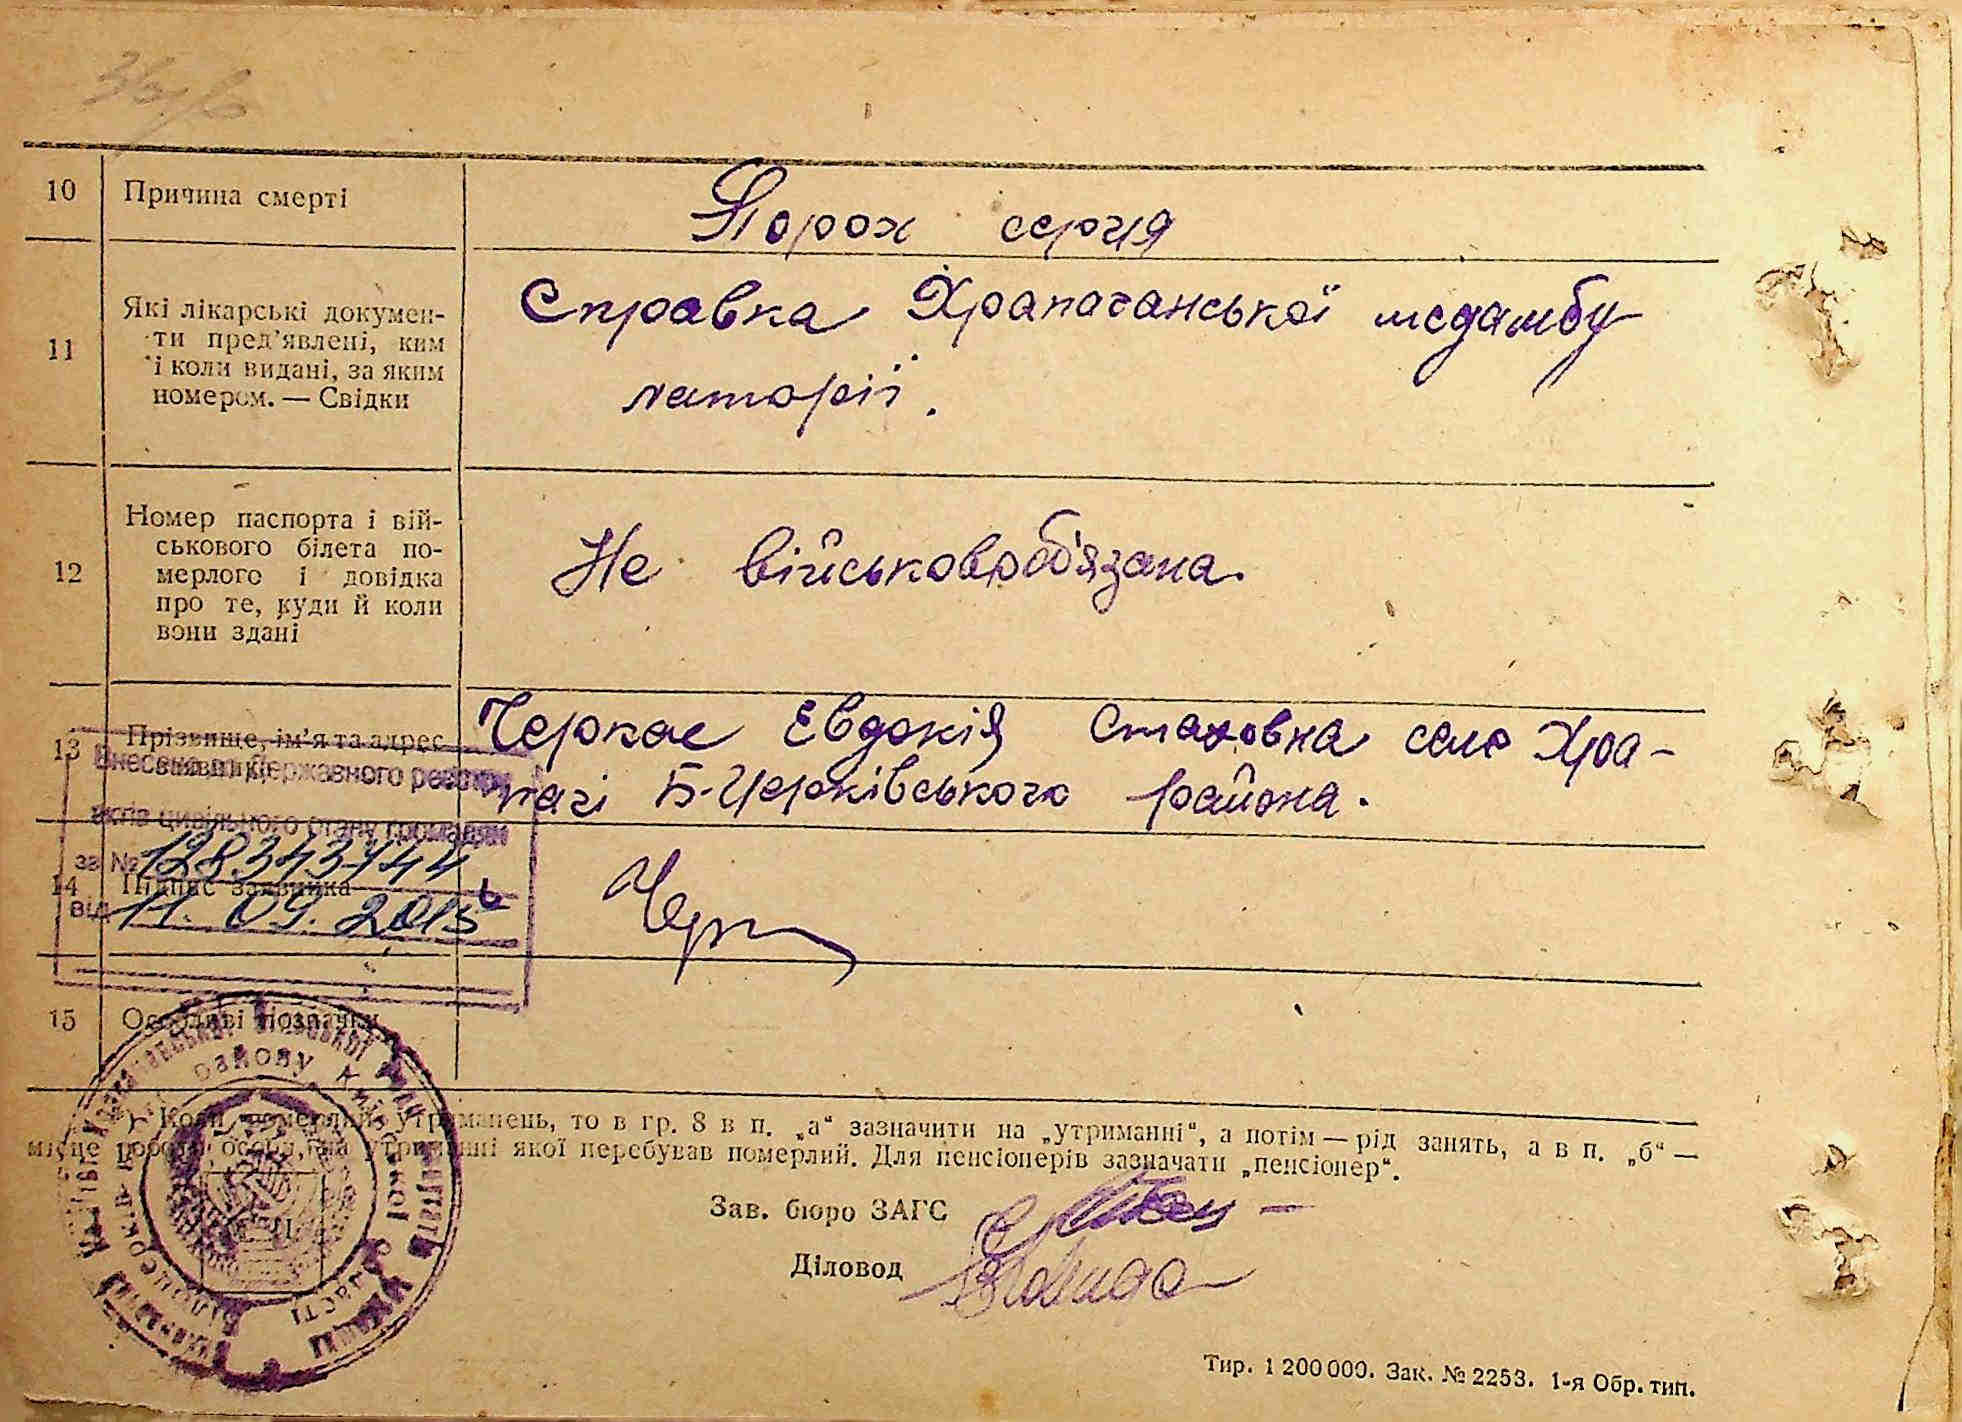 10 Причина смерті Порок серця
11 Які лікарські докумен-
ти пред'явлені, ким
і коли видані, за яким
номером. — Свідки
Справка Храпачанської медамбу
латорії.
12 Номер паспорта і вій-
ськового білета по-
мерлого і довідка
про те, куди й коли
вони здані
Не військовообязана.
13 Прізвище, ім'я та адрес
заявника
Черкас Евдокія село Хра-
пачі Б-Церківського района.
Внесено до Державного реєстру
актів цивільного стану громадян
за № 
від 11. 09. 2015
14 Підпис заявника
15 Особливі позначки
*) Коли померлий утриманець, то в гр. 8 в п. „а“ зазначити на „утриманні“, а потім — рід занять, а в п. „б“ —
місце роботи особи, на утриманні якої перебував померлий. Для пенсіонерів зазначати „пенсіонер“.
Зав. бюро ЗАГС
Діловод
Тир. 1 200 000. Зак. № 2253. 1-я Обр. тип.